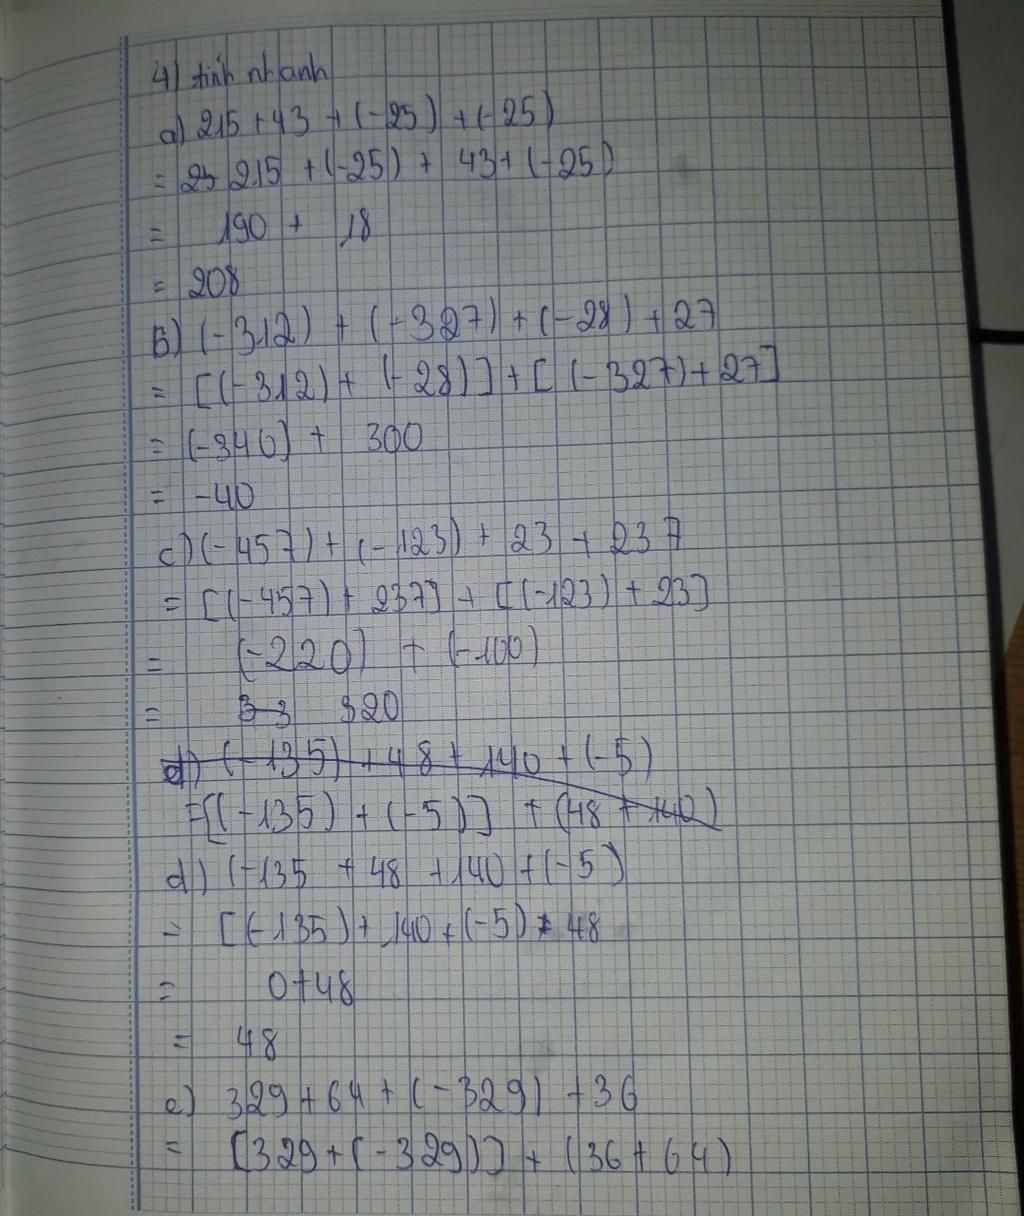 4) tính nhanh
a) 215 + 43 + (-25) + (-25)
= 25 215 + (-25) + 43 + (-25)
= 190 + 18
= 208
b) (-312) + (-327) + (-28) + 27
= [(-312) + (-28)] + [(-327) + 27]
= (-340) + 300
= -40
c) (-457) + (-123) + 23 + 237
= [(-457) + 237] + [(-123) + 23]
= (-220) + (-100)
= 3 3 320
d) (-135) + 48 + 140 + (-5)
= [(-135) + (-5)] + (48 + 140)
d) (-135 + 48 + 140 + (-5)
= [(-135) + 140 + (-5) + 48
= 0 + 48
= 48
e) 329 + 64 + (-329) + 36
= [329 + (-329)] + (36 + 64)